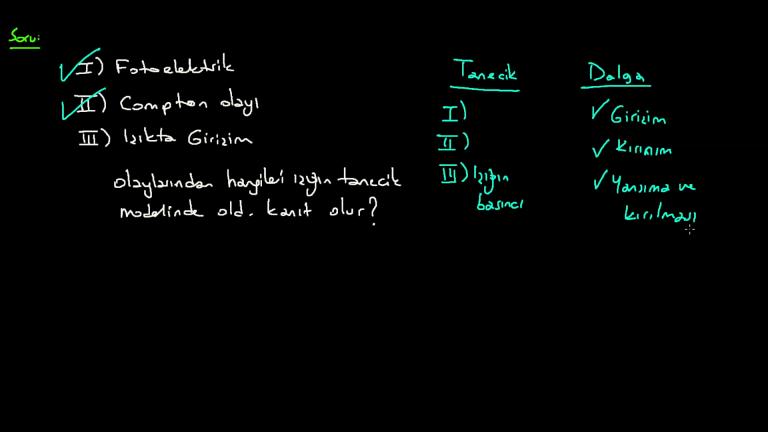 Soru:
I) Fotoelektrik
II) Compton olayı
III) Işıkta Girişim
olaylarından hangileri ışığın tanecik
modelinde old. kanıt olur?
Tanecik
I)
II)
III) Işığın
basıncı
Dalga
✓ Girişim
✓ Kırınım
✓ Yansıma ve
kırılması